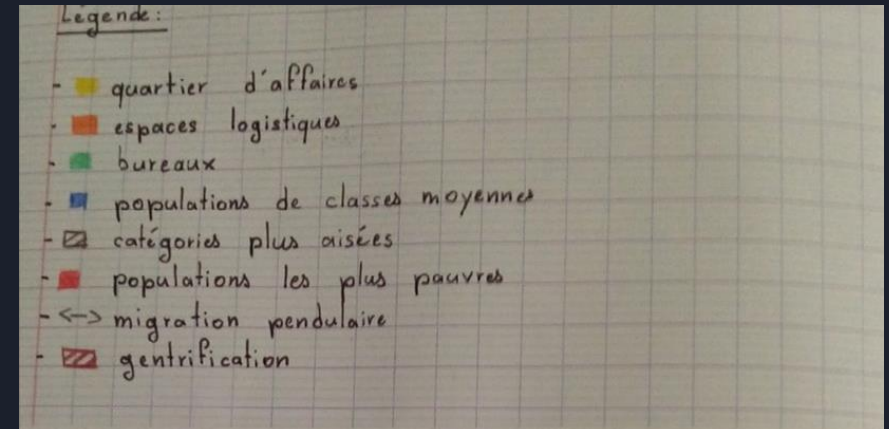 Légende:
- quartier d'affaires
- espaces logistiques
- bureaux
- populations de classes moyennes
- catégories plus aisées
- populations les plus pauvres
- <--> migration pendulaire
- gentrification